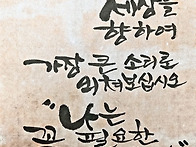 세상을
향하여
가장 큰 소리로
외쳐보십시오
"나는
꼭 필요한